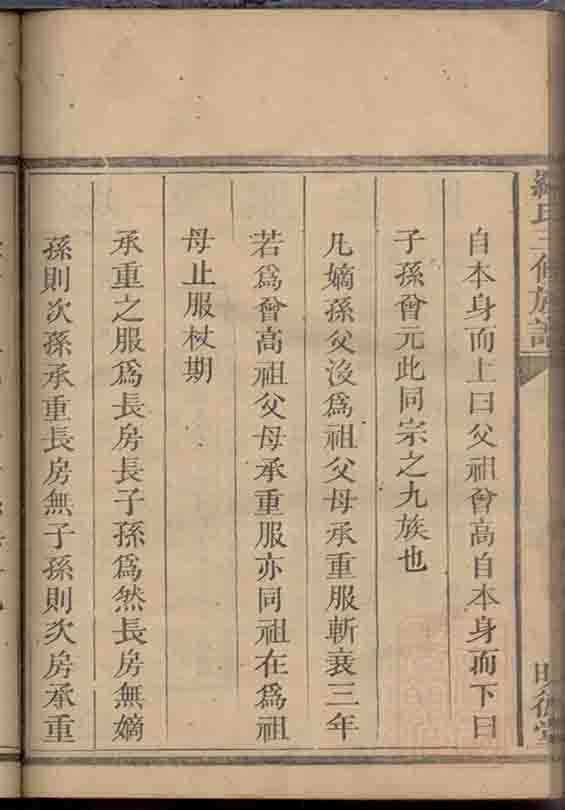 自本身而上曰父祖曾高自本身而下曰
子孫曾元此同宗之九族也
凡嫡孫父沒爲祖父母承重服斬衰三年
若爲曾高祖父母承重服亦同祖在爲祖
母止服杖期
承重之服爲長房長子孫爲然長房無嫡
孫則次孫承重長房無子孫則次房承重
氏三修族譜
堂